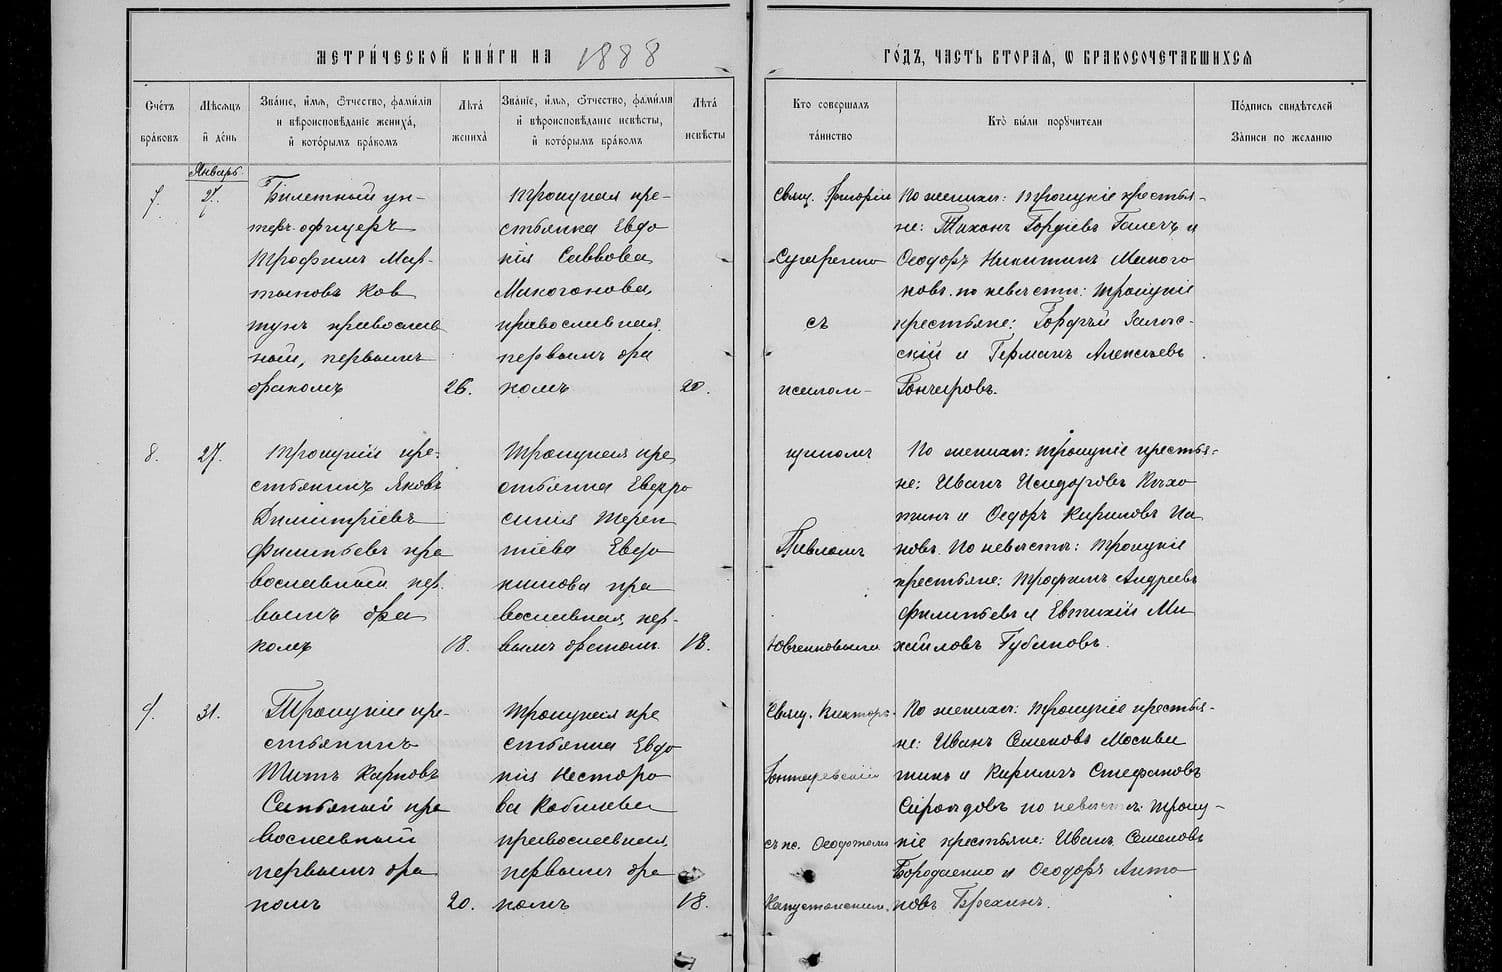 МЕТРИ́ЧЕСКОЙ КНИ́ГИ НА 1888
ГО́ДЪ, ЧАСТЬ ВТОРАЯ, Ѡ БРАКОСОЧЕТАВШИХСЯ
Сче́тъ
бра́ковъ
Мѣ́сяцъ
и̂ де́нь
Зва́нїе, и́мя, ѻтчество, фами́лїя
и вѣроисповѣ́данїе жениха̀,
и̂ кото́рымъ бра́комъ
Лѣ́та
жениха̀
Зва́нїе, и́мя, ѻтчество, фами́лїя
и̂ вѣроисповѣ́данїе невѣ́сты,
и̂ кото́рымъ бра́комъ
Лѣ́та
невѣ́сты
Кто совершалъ
та́инство
Кто̀ бы́ли пору́чители
По́дпись свидѣ́телей
За́писи по жела́нїю
Январь
7.
27.
Билетный ун-
теръ-офицеръ
Трофимъ Мар-
тыновъ Ков
тунъ православ
ный, первымъ
бракомъ
26.
Троицкая кре-
стьянка Евдо
кія Саввова
Макогонова,
православная
первымъ бра
комъ
20.
Свящ. Григорій
Сухаренко
съ
псалом-
По женихѣ: Троицкіе крестья-
не: Тихонъ Гордіевъ Галечъ и
Ѳеодоръ Никитинъ Макого
новъ. по невѣстѣ: Троицкіе
крестьяне: Гордѣй
скій и Германъ Алексѣевъ
Гончаровъ.
8.
27.
Троицкій кре-
стьянинъ Яковъ
Димитріевъ
Филипьевъ пра
вославный пер
вымъ бра
комъ
18.
Троицкая кре
стьянка Евфро
синія Терен
тіева Евдо
кимова пра
вославная, пер-
вымъ бракомъ
18.
щикомъ
Павломъ
Ювченковымъ
По женихѣ: Троицкіе крестья-
не: Иванъ Исидоровъ
тинъ и Ѳедоръ Кириловъ Па
новъ. По невѣстѣ: Троицкіе
крестьяне: Трофимъ Андреевъ
Филипьевъ и Евтихій Ми
хайловъ Губановъ.
9.
31.
Троицкій кре-
стьянинъ
Титъ Карповъ
пра
вославный
первымъ бра
комъ
20.
Троицкая кре
стьянка Евдо
кія Несторо
ва Кобылева
православная,
первымъ бра
комъ
18.
Свящ. Викторъ
Гонтаревскій
съ пс. Ѳеодотомъ
Капустянскимъ.
По женихѣ: Троицкіе крестья-
не: Иванъ Семеновъ Москви
тинъ и Кирилъ Стефановъ
по невѣстѣ: Трои-
кіе крестьяне: Иванъ Семеновъ
Бородаенко и Ѳеодоръ Анто
новъ Брехинъ.